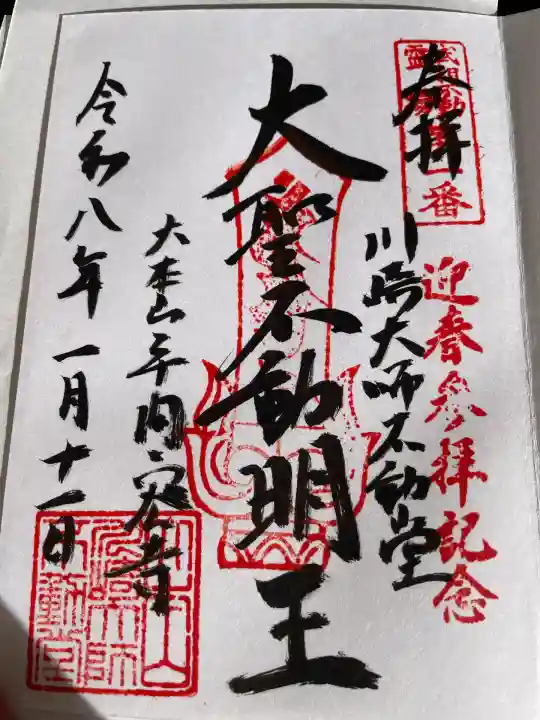 奉拝
霊
一番
迎春参拝記念
川崎大師不動堂
大聖不動明王
大本山平間寺
令和八年一月十一日